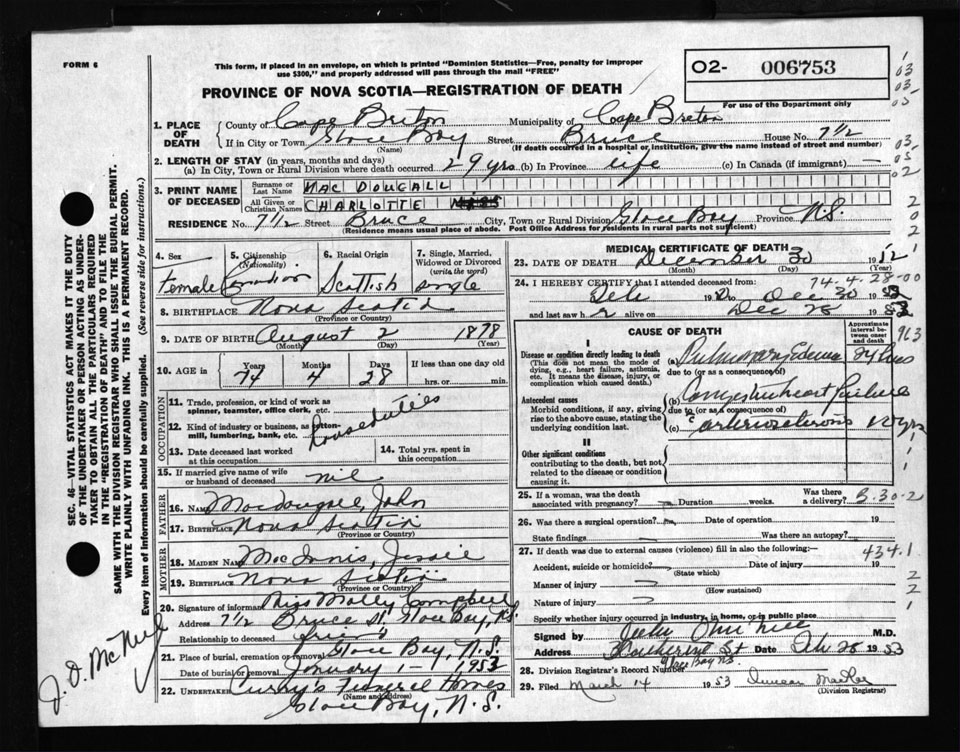 FORM 6
This form, if placed in an envelope, on which is printed "Dominion Statistics—Free, penalty for improper
use $300," and properly addressed will pass through the mail "FREE"
O2- 006753
For use of the Department only
PROVINCE OF NOVA SCOTIA—REGISTRATION OF DEATH
1. PLACE OF DEATH
County of Cape Breton Municipality of Cape Breton
If in City or Town Glace Bay Street Bruce House No. 7 1/2
(Name) (If death occurred in a hospital or institution, give the name instead of street and number)
2. LENGTH OF STAY (in years, months and days)
(a) In City, Town or Rural Division where death occurred 29 yrs (b) In Province life (c) In Canada (if immigrant) —
3. PRINT NAME OF DECEASED
Surname or Last Name MAC DOUGALL
All Given or Christian Names CHARLOTTE
RESIDENCE No. 7 1/2 Street Bruce City, Town or Rural Division Glace Bay Province N.S.
(Residence means usual place of abode. Post Office Address for residents in rural parts not sufficient)
4. Sex
female
5. Citizenship (Nationality)
Canadian
6. Racial Origin
Scottish
7. Single, Married, Widowed or Divorced (write the word)
single
8. BIRTHPLACE Nova Scotia
(Province or Country)
9. DATE OF BIRTH August 2 1878
(Month) (Day) (Year)
10. AGE in Years Months Days If less than one day old
74 4 28 hrs. or min.
OCCUPATION
11. Trade, profession, or kind of work as
spinner, teamster, office clerk, etc.
12. Kind of industry or business, as cotton-
mill, lumbering, bank, etc. house duties
13. Date deceased last worked
at this occupation
14. Total yrs. spent in
this occupation
15. If married give name of wife
or husband of deceased nil
FATHER
16. Name MacDougall, John
17. Birthplace Nova Scotia
(Province or Country)
MOTHER
18. MAIDEN NAME MacInnis, Jessie
19. BIRTHPLACE Nova Scotia
(Province or Country)
20. Signature of informant Miss Molly Campbell
Address 7 1/2 Bruce St. Glace Bay, N.S.
Relationship to deceased friend
21. Place of burial, cremation or removal Glace Bay, N.S.
Date of burial or removal January 1— 1953
22. Undertaker Curry's Funeral Homes
(Name and address)
Glace Bay, N.S.
MEDICAL CERTIFICATE OF DEATH
23. DATE OF DEATH December 30
(Month) (Day) (Year)
74.4.28-00
24. I HEREBY CERTIFY that I attended deceased from:
19 to Dec 30 19
and last saw h r alive on Dec 28 19
CAUSE OF DEATH
Approximate interval between onset and death
I
Disease or condition directly leading to death
(This does not mean the mode of
dying, e.g., heart failure, asthenia,
etc. It means the disease, injury, or
complication which caused death.)
(a) Pulmonary Edema
due to (or as a consequence of)
Antecedent causes
Morbid conditions, if any, giving
rise to the above cause, stating the
underlying condition last.
(b) Congestive heart failure
due to (or as a consequence of)
(c) arteriosclerosis 10 yrs
II
Other significant conditions
contributing to the death, but not
related to the disease or condition
causing it.
25. If a woman, was the death
associated with pregnancy? Duration weeks. Was there a delivery?
26. Was there a surgical operation? Date of operation 19
State findings Was there an autopsy?
27. If death was due to external causes (violence) fill in also the following:— 434.1
Accident, suicide or homicide? Date of injury 19
(State which)
Manner of injury
(How sustained)
Nature of injury
Specify whether injury occurred in industry, in home, or in public place
Signed by M.D.
Address Catherine St Date Feb 28 1953
Glace Bay N.S.
28. Division Registrar's Record Number
29. Filed March 14 1953 Duncan MacKay
(Division Registrar)
SEC. 46—VITAL STATISTICS ACT MAKES IT THE DUTY
OF THE UNDERTAKER OR PERSON ACTING AS UNDER-
TAKER TO OBTAIN ALL THE PARTICULARS REQUIRED
IN THE "REGISTRATION OF DEATH" AND TO FILE THE
SAME WITH THE DIVISION REGISTRAR WHO SHALL ISSUE THE BURIAL PERMIT.
WRITE PLAINLY WITH UNFADING INK. THIS IS A PERMANENT RECORD.
Every item of information should be carefully supplied. (See reverse side for instructions.)